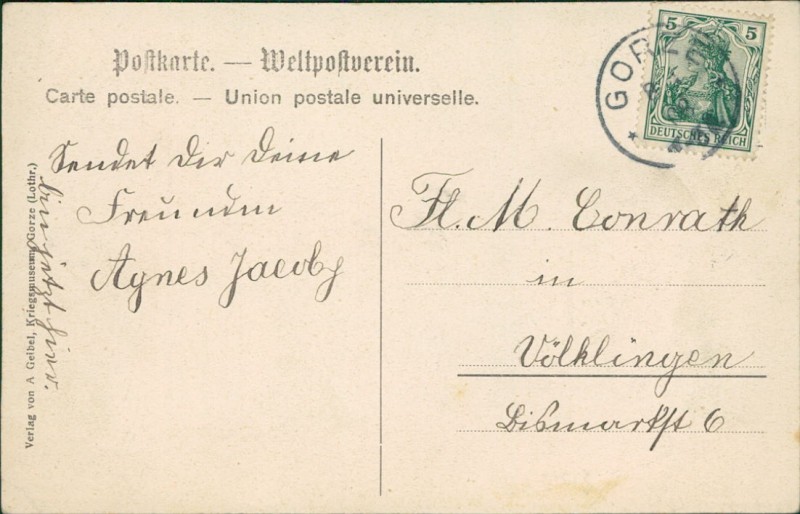 Postkarte. — Weltpostverein.
Carte postale. — Union postale universelle.
5 5
DEUTSCHES REICH
GORZE
Sendet Dir Deine
Freundin
Agnes Jacoby
bin jetzt hier.
Verlag von A Geibel, Kriegsmuseum Gorze (Lothr.)
Fl. M. Conrath
in
Völklingen
Bismarkst 6